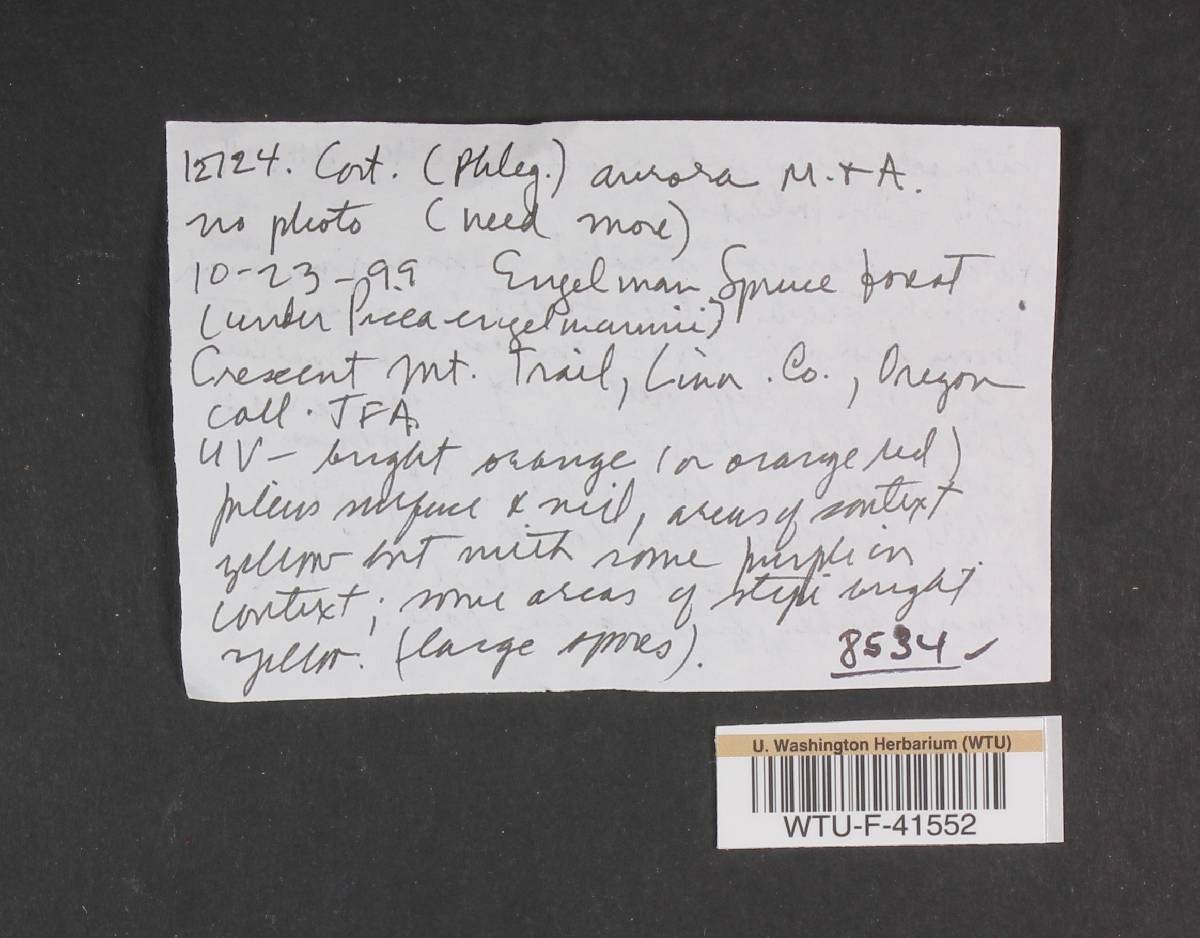 12724. Cort. (Phleg.) aurora M. + A.
no photo (need more)
10-23-99 Engelman Spruce forest
(under Picea engelmannii)
Crescent Mt. Trail, Linn. Co., Oregon
coll. JFA.
UV - bright orange (or orange red)
pileus surface & veil, areas of context
yellow but with some purple in
context; some areas of stipe bright
yellow. (large spores).
8534 ✓
U. Washington Herbarium (WTU)
WTU-F-41552